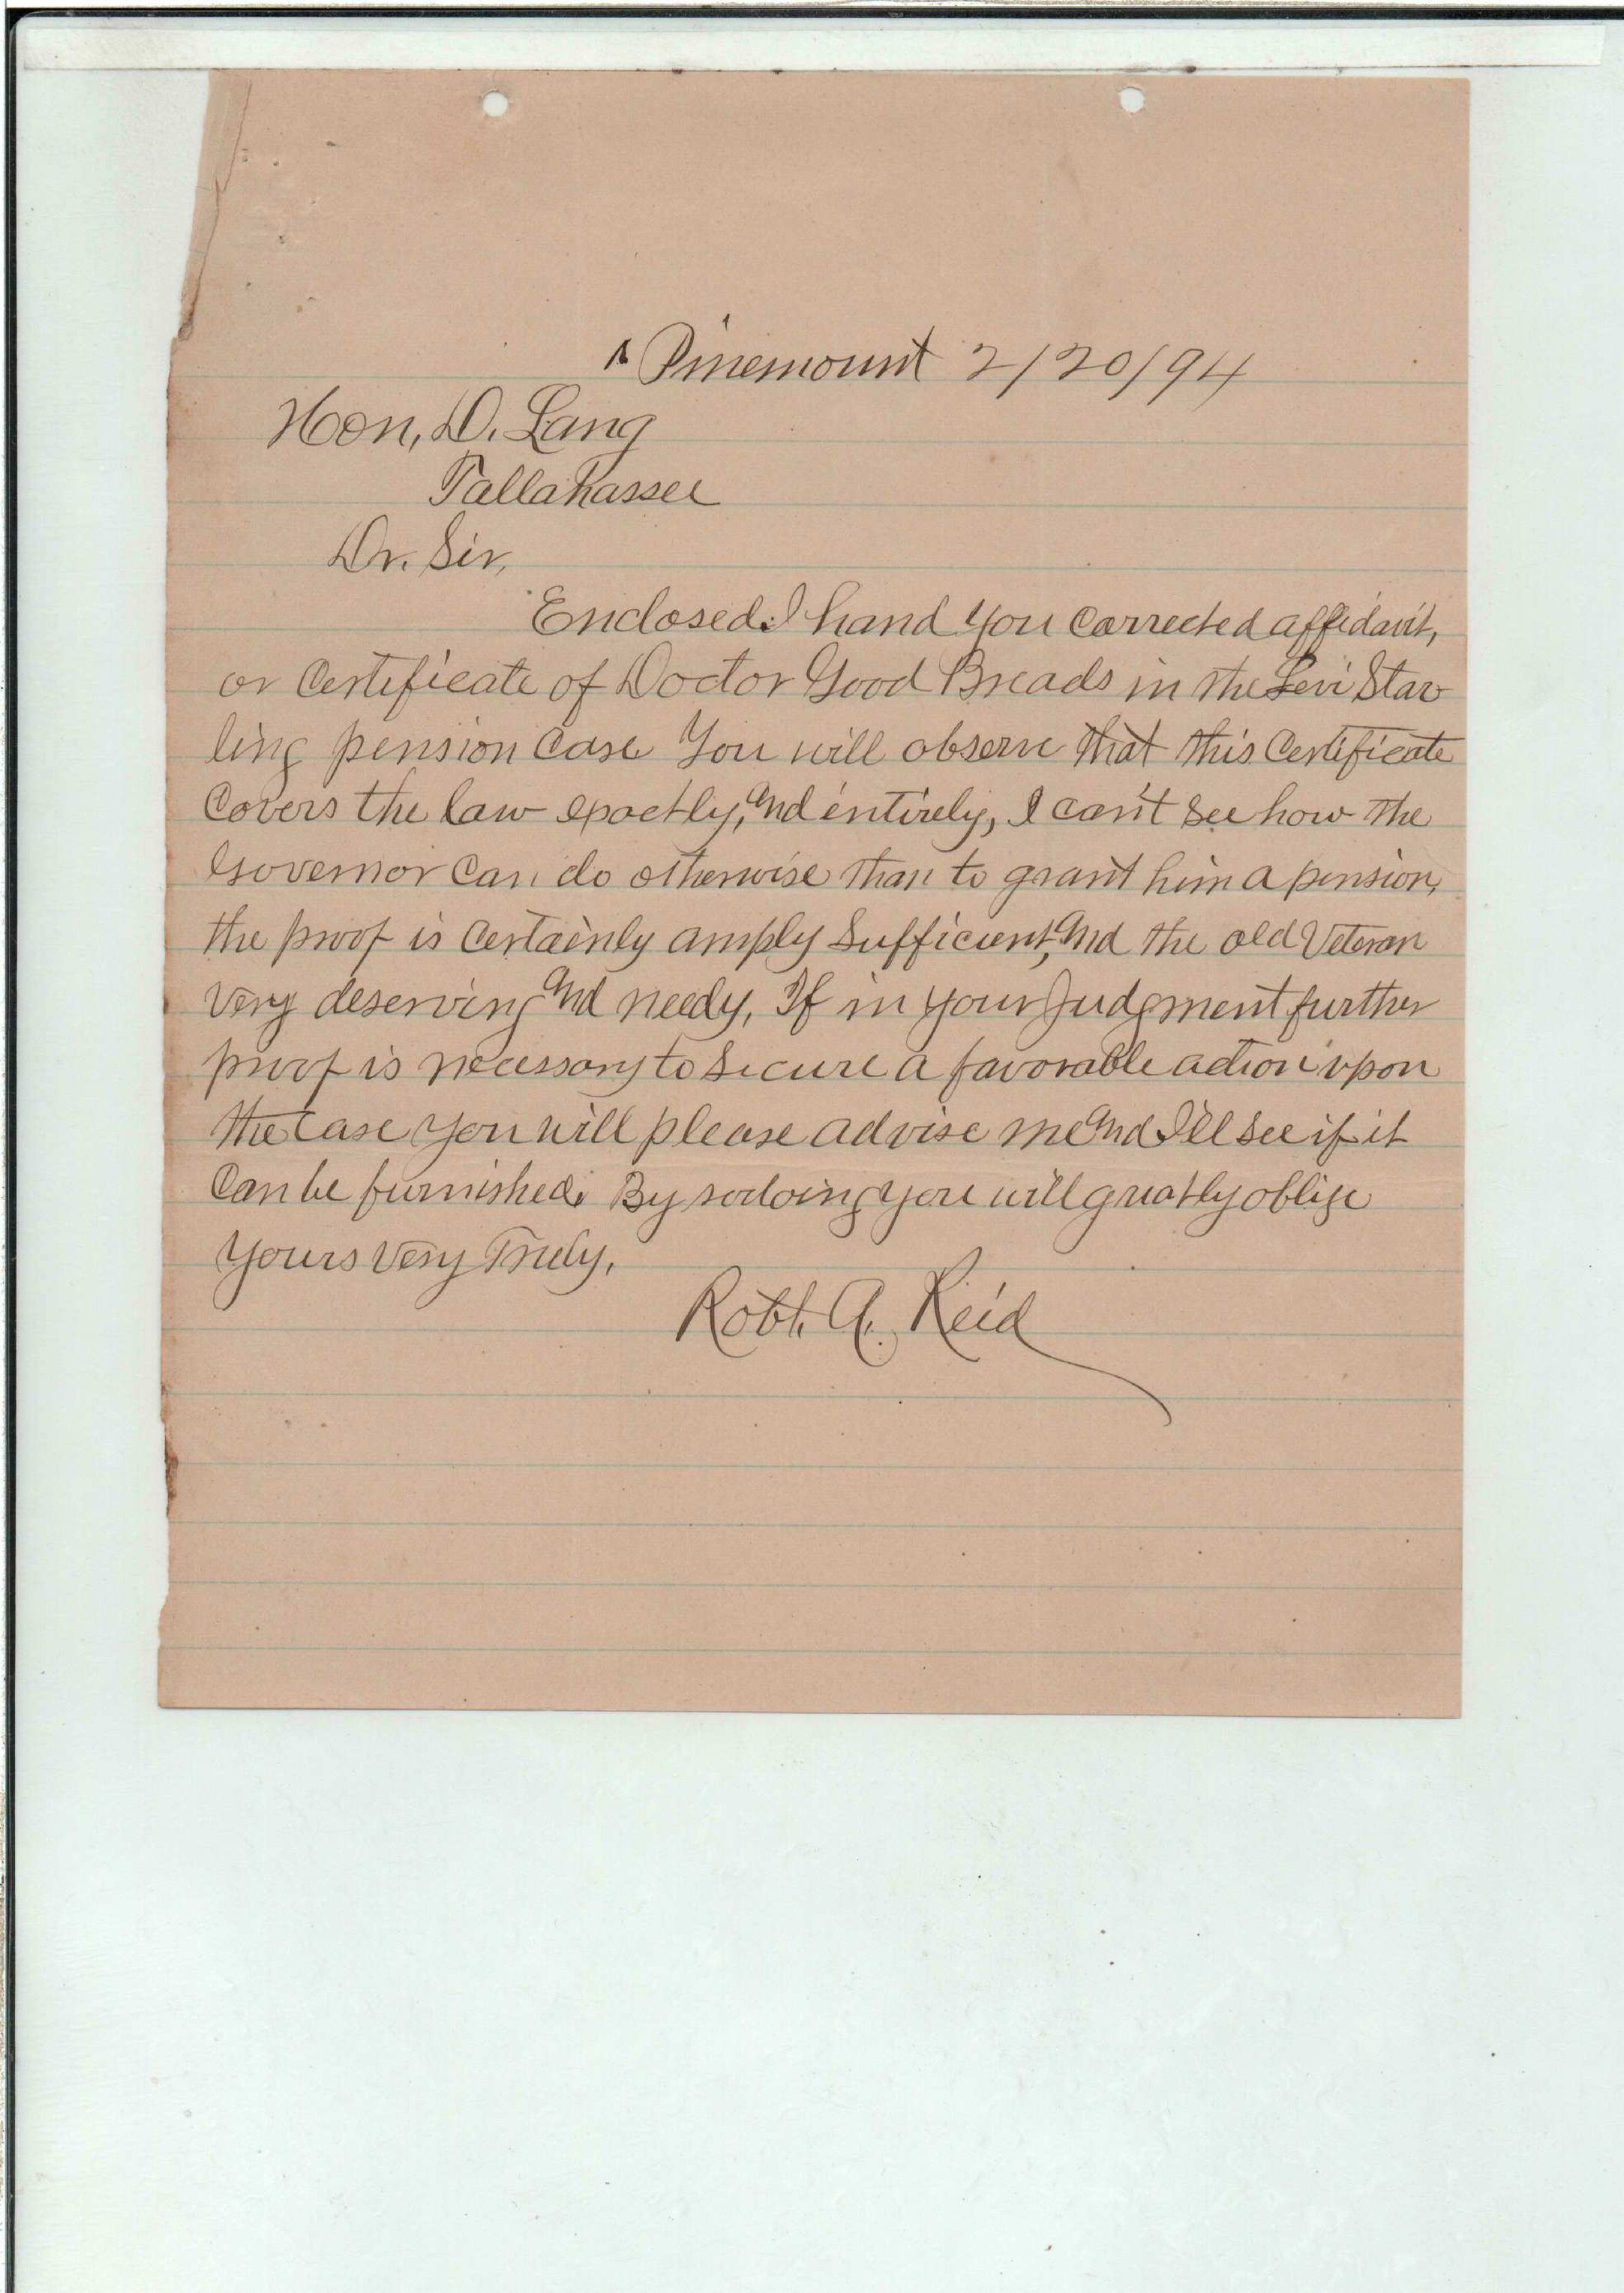 Pinemount 2/20/94
Hon, D. Lang
Tallahassee
Dr. Sir,
Enclosed I hand you corrected affidavit,
or Certificate of Doctor Good Breads in the Levi Star
ling pension case You will observe that this Certificate
Covers the law exactly, and entirely, I can't see how the
Governor can do otherwise than to grant him a pension,
the proof is certainly amply sufficient, and the old Veteran
very deserving and needy, If in your Judgment further
proof is necessary to secure a favorable action upon
the case you will please advise me and I'll see if it
can be furnished. By so doing you will greatly oblige
Yours Very Truly,
Robt. A. Reid